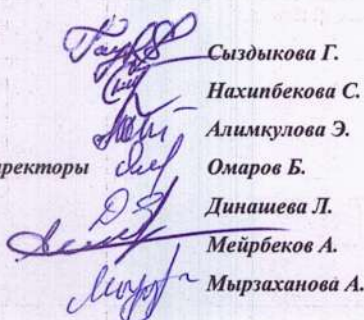 Сыздыкова Г.
Нахипбекова С.
Алимкулова Э.
иректоры Омаров Б.
Динашева Л.
Мейрбеков А.
Мырзаханова А.